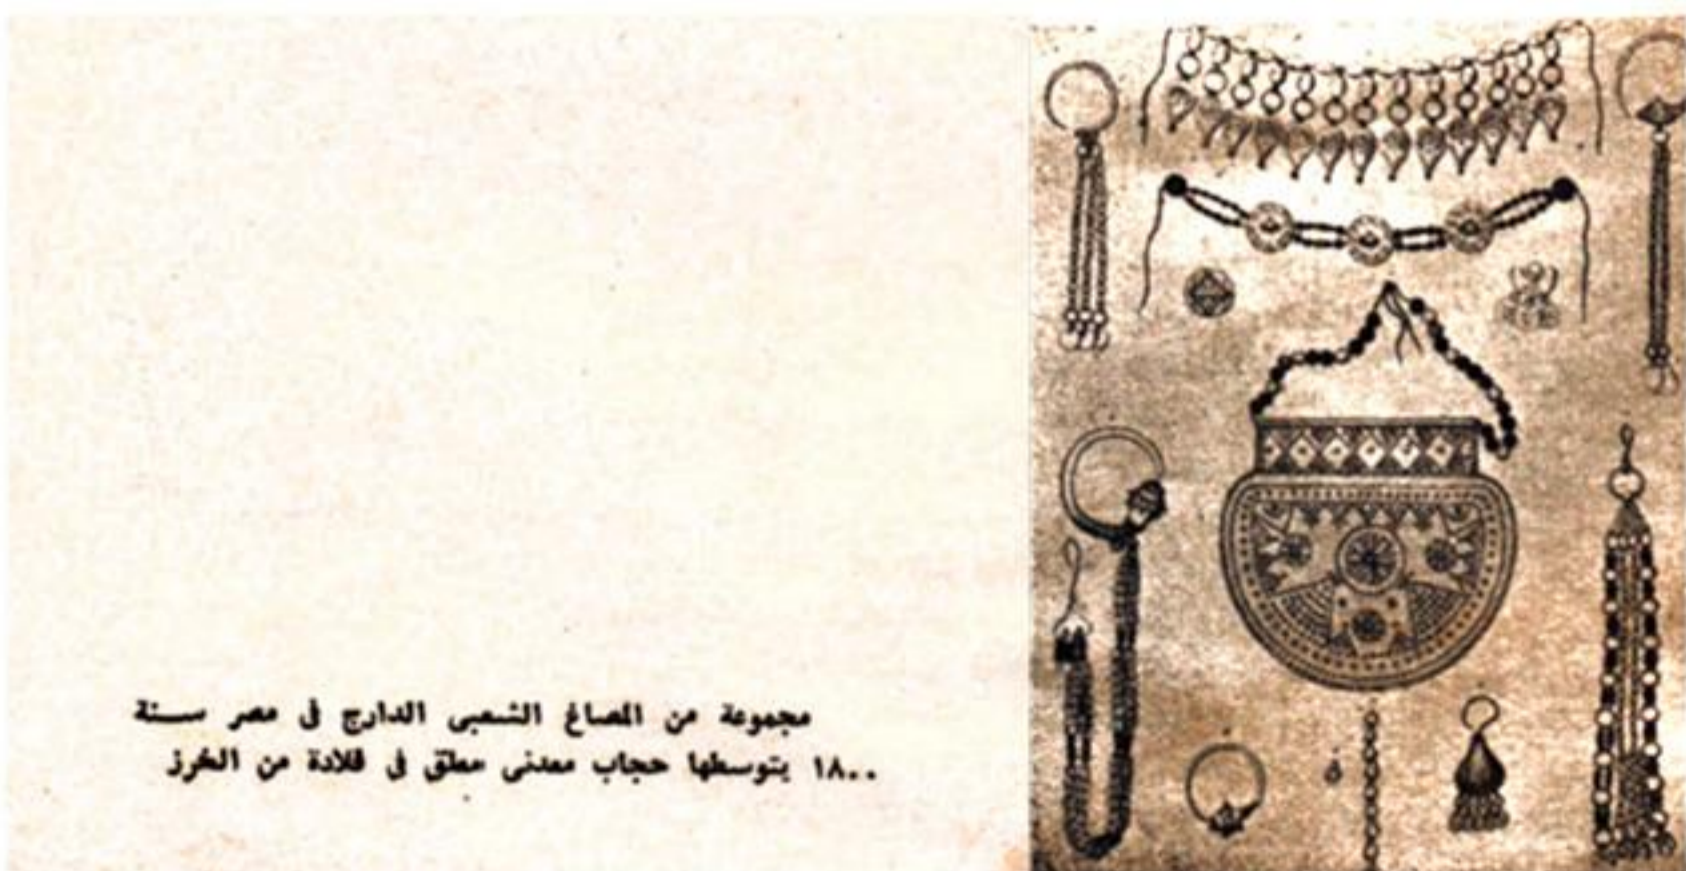 مجموعة من المصاغ الشعبى الدارج فى مصر سنة
١٨٠٠ يتوسطها حجاب معدنى معلق فى قلادة من الخرز